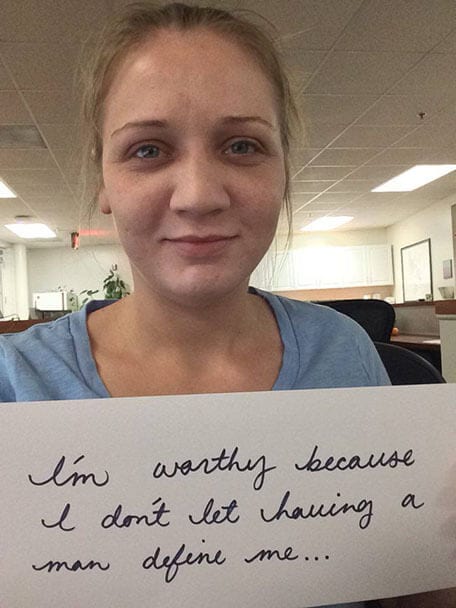 I'm worthy because
I don't let having a
man define me...